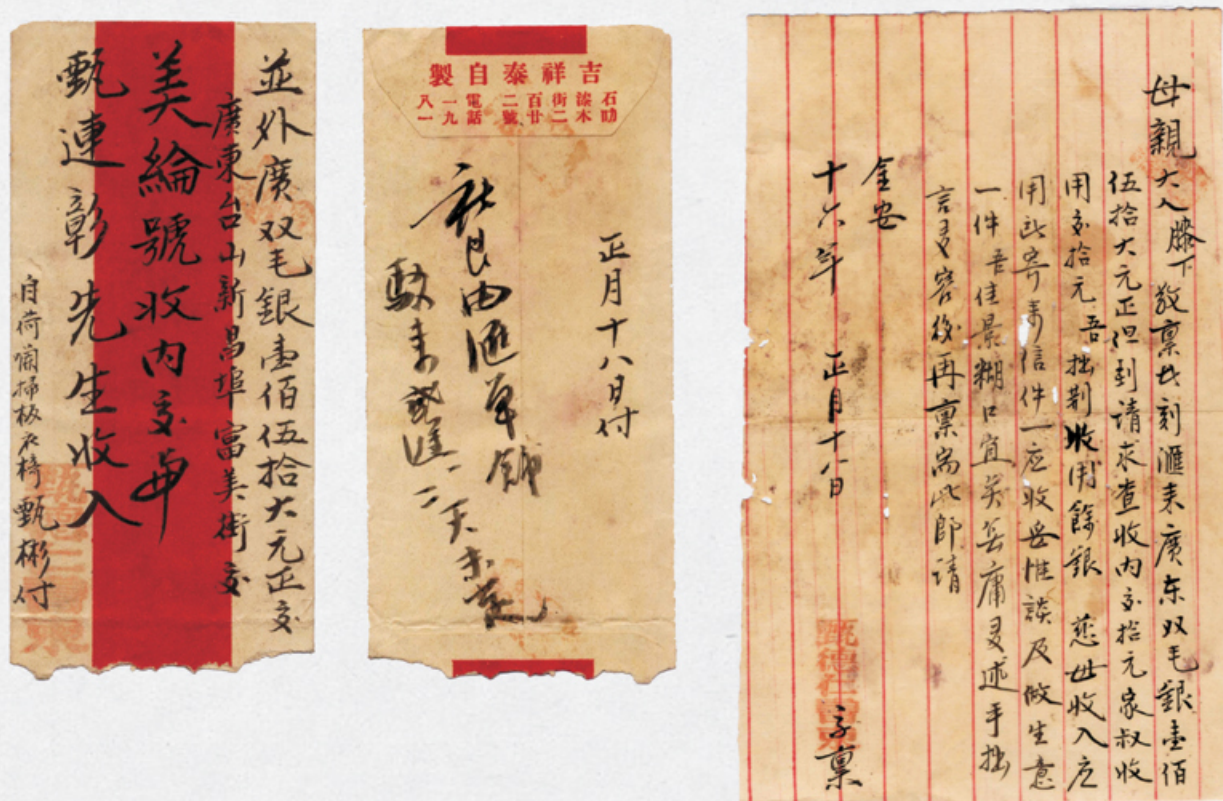 並外廣双毛銀壹佰伍拾大元正交
廣東台山新昌埠富美街交
美綸號收內交毋
甄連彰先生收入
甄彬付
吉祥泰自製
石叻漆木街二百廿二號電話一九八一
正月十八日付
母親大人膝下敬禀此刻滙來廣东双毛銀壹佰
伍拾大元正但到請求查收內交拾元家叔收
用交拾元吾拙荆收用餘銀 慈母收入应
用此寄來信件一应收妥惟談及做生意
一件吾佳景糊口宜矣无庸多述手拙
言多容後再禀耑此即請
金安
十六年 正月十八日
子禀
甄德仁書柬